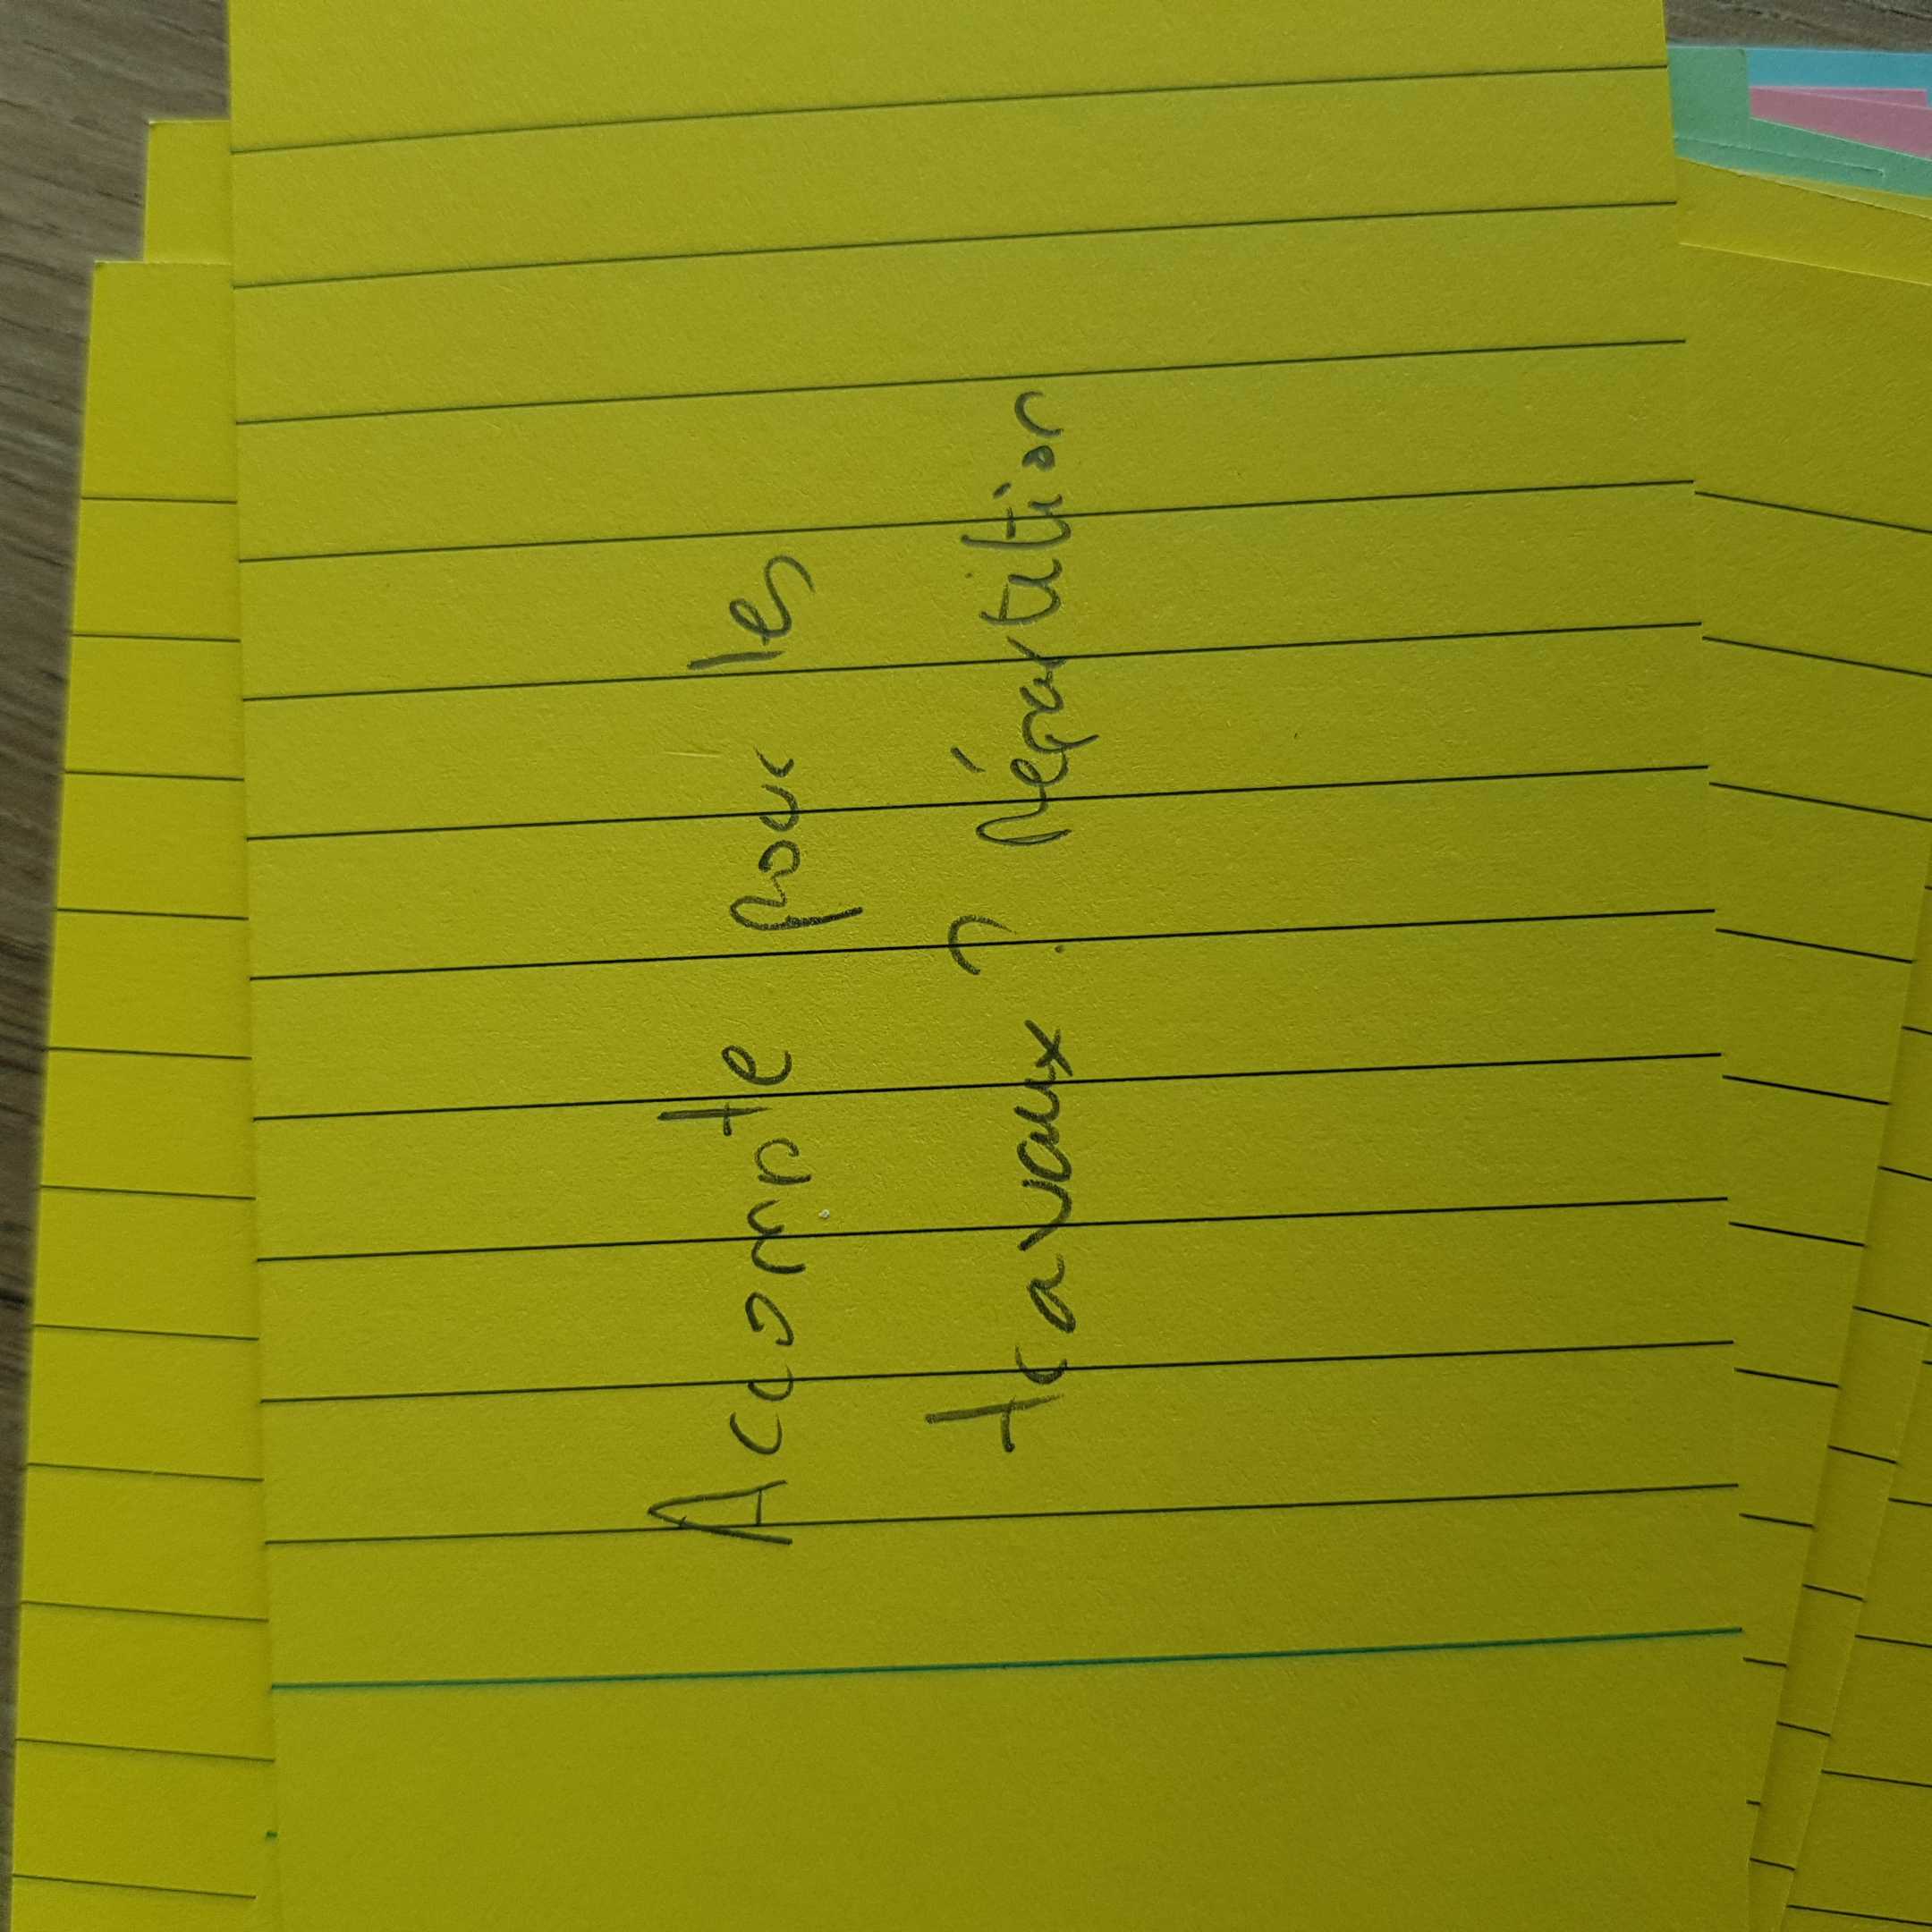 Accompte pour les
travaux ? répartition